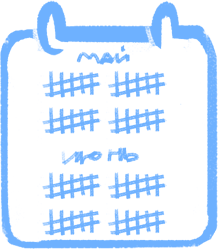 МАЙ
ИЮНЬ